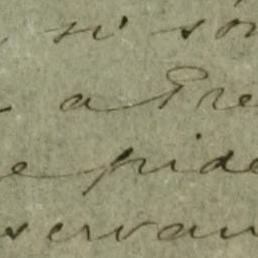 si só
a Pre
e pide
servan